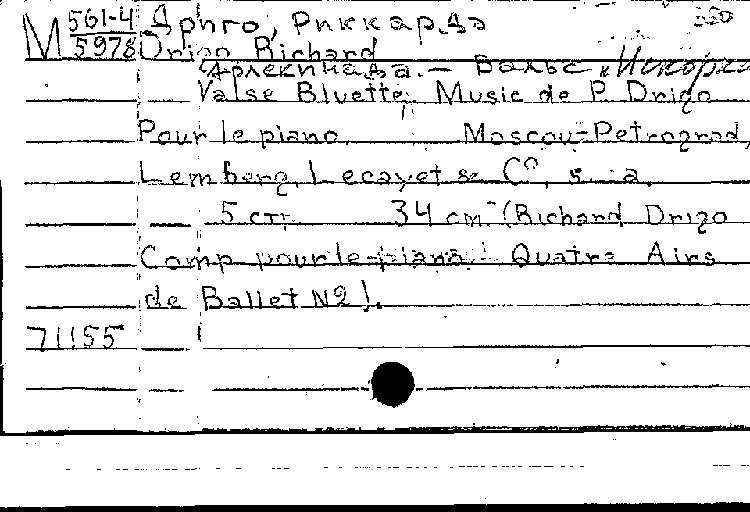 М 561-4 Дриго, Риккардо
5978 Drigo Richard
Арлекинада. — Вальс „Искорки
Valse Bluette. Music de P. Drigo
Pour le piano. Moscou-Petrograd,
Lemberg, Lecayet & C°, s. a.
5 стр. 34 cm. (Richard Drigo
Comp pour le piano. Quatre Airs
de Ballet N2).
71155